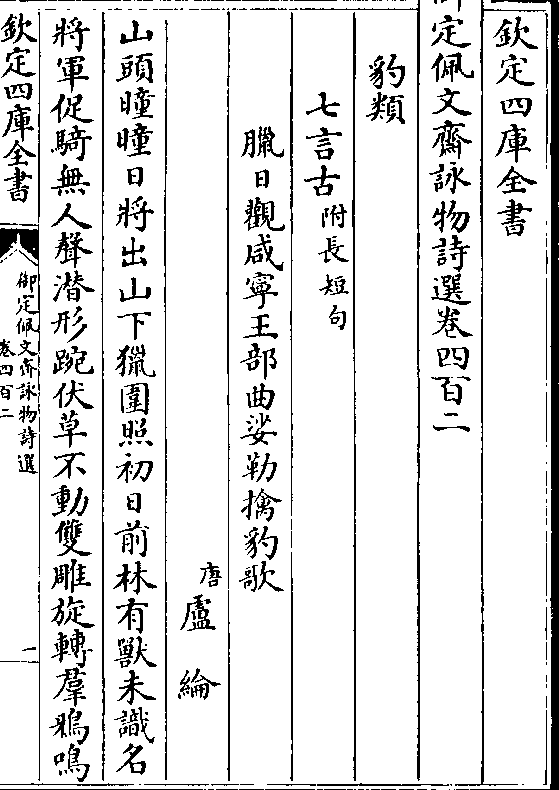 欽定四庫全書
御定佩文齋詠物詩選卷四百二
豹類
七言古附長短句
臘日觀咸寧王部曲娑勒擒豹歌
唐盧綸
山頭曈曈日將出山下獵圍照初日前林有獸未識名
將軍促騎無人聲潜形踠伏草不動雙雕旋轉羣鴉鳴
欽定四庫全書
御定佩文齋詠物詩選
卷四百二
一